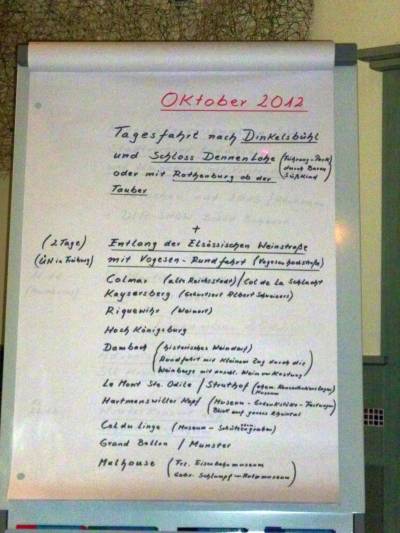 Oktober 2012
Tagesfahrt nach Dinkelsbühl
und Schloss Dennenlohe (Führung - Park
durch Baron
Süßkind)
oder mit Rothenburg ob der
Tauber
+
(2 Tage) Entlang der Elsässischen Weinstraße
(ÜN in Freiburg) mit Vogesen-Rundfahrt (Vogesenhochstraße)
Colmar (alte Reichsstadt) / Col de La Schlucht
Kaysersberg (Geburtsort Albert Schweizers)
Riquewihr (Weinort)
Hoch Königsburg
Dambach (historisches Weindorf)
(Rundfahrt mit kleinem Zug durch die
Weinberge mit anschl. Weinverkostung)
Le Mont Ste. Odile / Struthof (ehem. Konzentrationslager
Museum
Hartmansweiler Kopf (Museum - Gedenkstätte - Festungen
Blick auf ganzes Rheintal
Col du Linge (Museum - Schützengräben)
Grand Ballon / Munster
Malhouse (Frz. Eisenbahnmuseum
Gebr. Schlumpf - Automuseum)